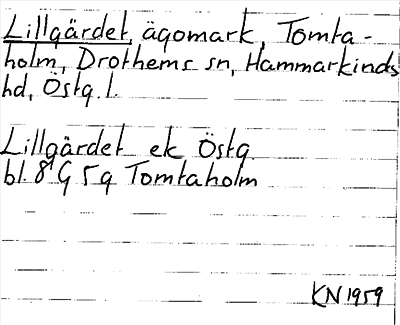 Lillgärdet, ägomark, Tomta-
holm, Drothems sn, Hammarkinds
hd, Östg. l.
Lillgärdet ek Östg.
bl. 8 G 5 g Tomtaholm
KN 1959